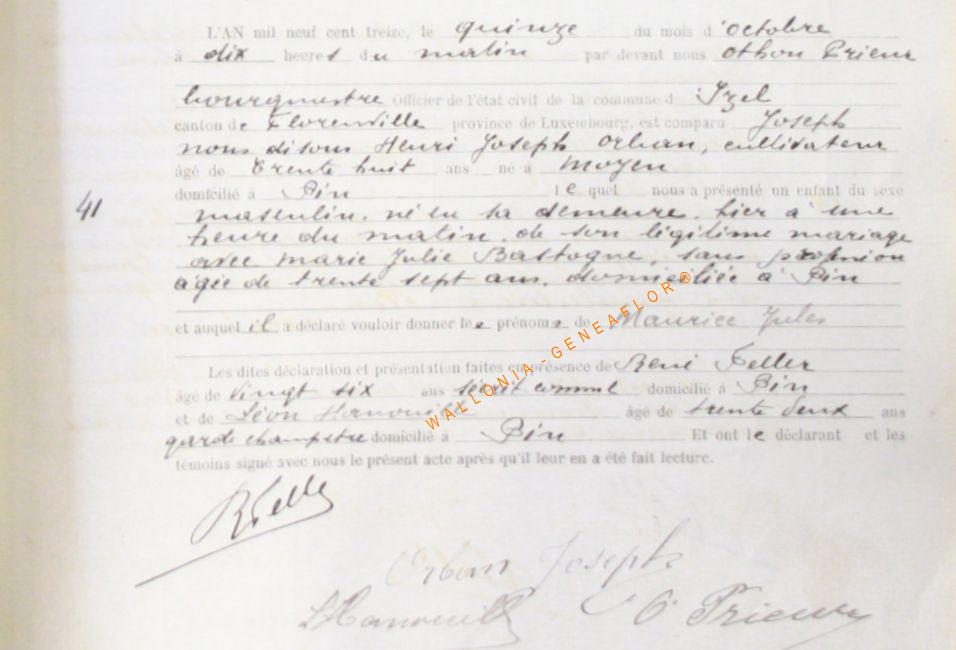 L'AN mil neuf cent treize, le quinze du mois d'octobre
à dix heures du matin par devant nous Othon Prieur
bourgmestre Officier de l'état civil de la commune d'Izel
canton de Florenville province de Luxembourg, est comparu Joseph
nous disons Henri Joseph Orban, cultivateur
âgé de trente huit ans né à Moyen
domicilié à Pin lequel nous a présenté un enfant du sexe
41
masculin, né en sa demeure, hier à une
heure du matin, de son légitime mariage
avec Marie Julie Bastogne, sans profession
âgée de trente sept ans, domiciliée à Pin
et auquel il a déclaré vouloir donner les prénoms de Maurice Jules
Les dites déclaration et présentation faites en présence de René Feller
âgé de vingt six ans secrét. comml domicilié à Pin
et de Léon Hanouille âgé de trente deux ans
garde champêtre domicilié à Pin Et ont le déclarant et les
témoins signé avec nous le présent acte après qu'il leur en a été fait lecture.
WALLONIA-GENEAFLOR®
RFeller
Orban Joseph
LHanouille O Prieur